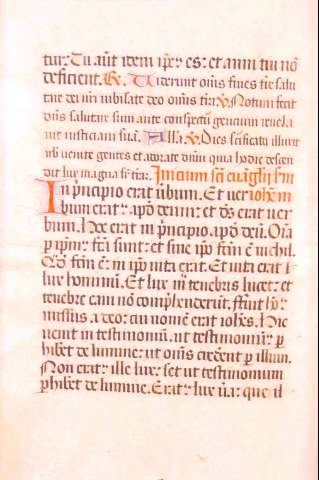 tur. Tu aut idem ipse es: et anni tui nō
deficient. R. Viderunt oms fines tre salu
tare dei nri iubilate deo omis tra V Notum fecit
dns salutare suum ante conspectu gencium reuela
uit iusticiam suā. Alla V Dies scificata illuxit
nob uenite gentes et adorate dnm quia hodie descen
dit lux magna sr tra. Inicium sci euāglij sm
In principio erat ūbum. Et ver iohem
bum erat apd deum: et ds erat ver
bum. Hoc erat in principio apd deū. Oīa
p ipm fca sunt: et sine ipo fcm ē nichil.
Qd fcm ē: in ipo uita erat. Et uita erat
lux hominū. Et lux in tenebris lucet: et
tenebre eam nō comprehenderunt. ffuit ho
missus a deo: cui nomē erat iohes. Hic
uenit in testimoniū. ut testimoniū p
hibet de lumine: ut omīs crederēt p illum.
Non erat ille lux: set ut testimonium
phibet de lumine. Erat lux ūa: que il